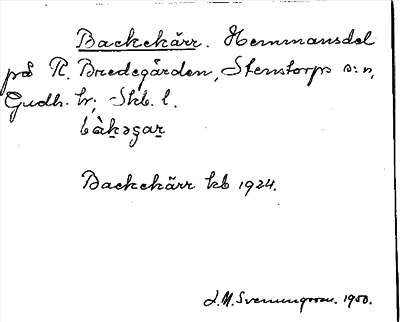 Backekärr. Hemmansdel
på R. Bredegården, Stenstorps s:n,
Gudh. hr; Skb. l.
bàkəgar
Backekärr kb 1924.
J. M. Svenungsson. 1950.